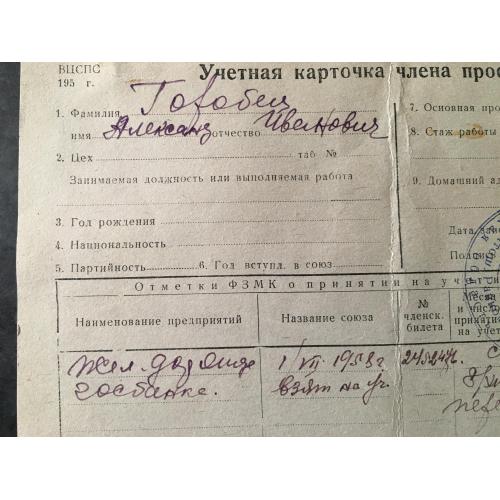 ВЦСПС
195 г.
Учетная карточка члена проф
1. Фамилия Горобец
имя Александр отчество Иванович
2. Цех таб №
Занимаемая должность или выполняемая работа
3. Год рождения
4. Национальность
5. Партийность 6. Год вступл. в союз
7. Основная про
8. Стаж работы
9. Домашний ад
Дата запо
Подпис
Отметки ФЗМК о принятии на учет и
Наименование предприятий
Название союза
№ членск. билета
Месяц и число принятия на учет
Жел. дор
госбанка.
1/VII 1958г
взят на уч.